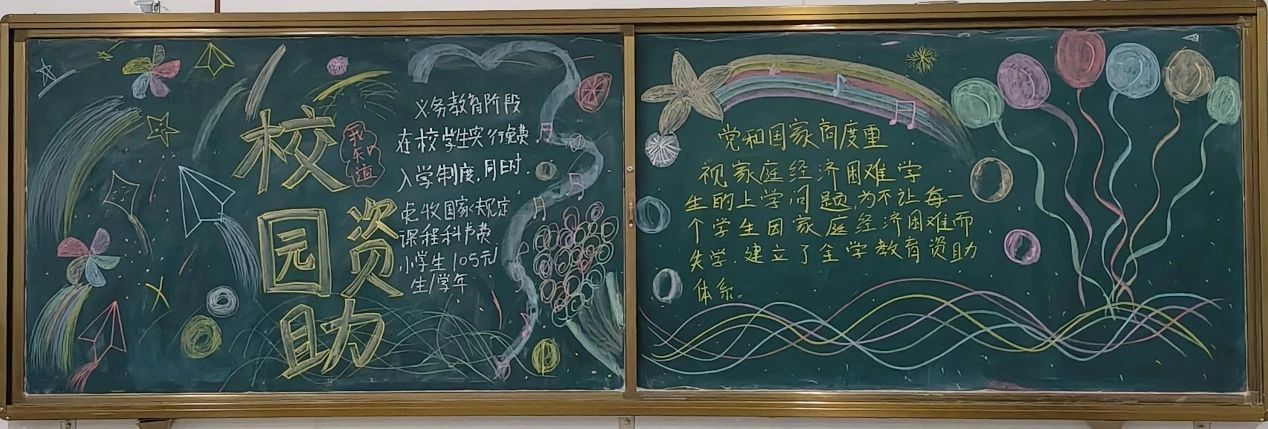 校
园 资
助
我知道
义务教育阶段
在校学生实行免费
入学制度.同时.
收国家规定
课程科费
小学生105元/
生/学年
党和国家高度重
视家庭经济困难学
生的上学问题为不让每一
个学生因家庭经济困难而
失学,建立了全学教育资助
体系。